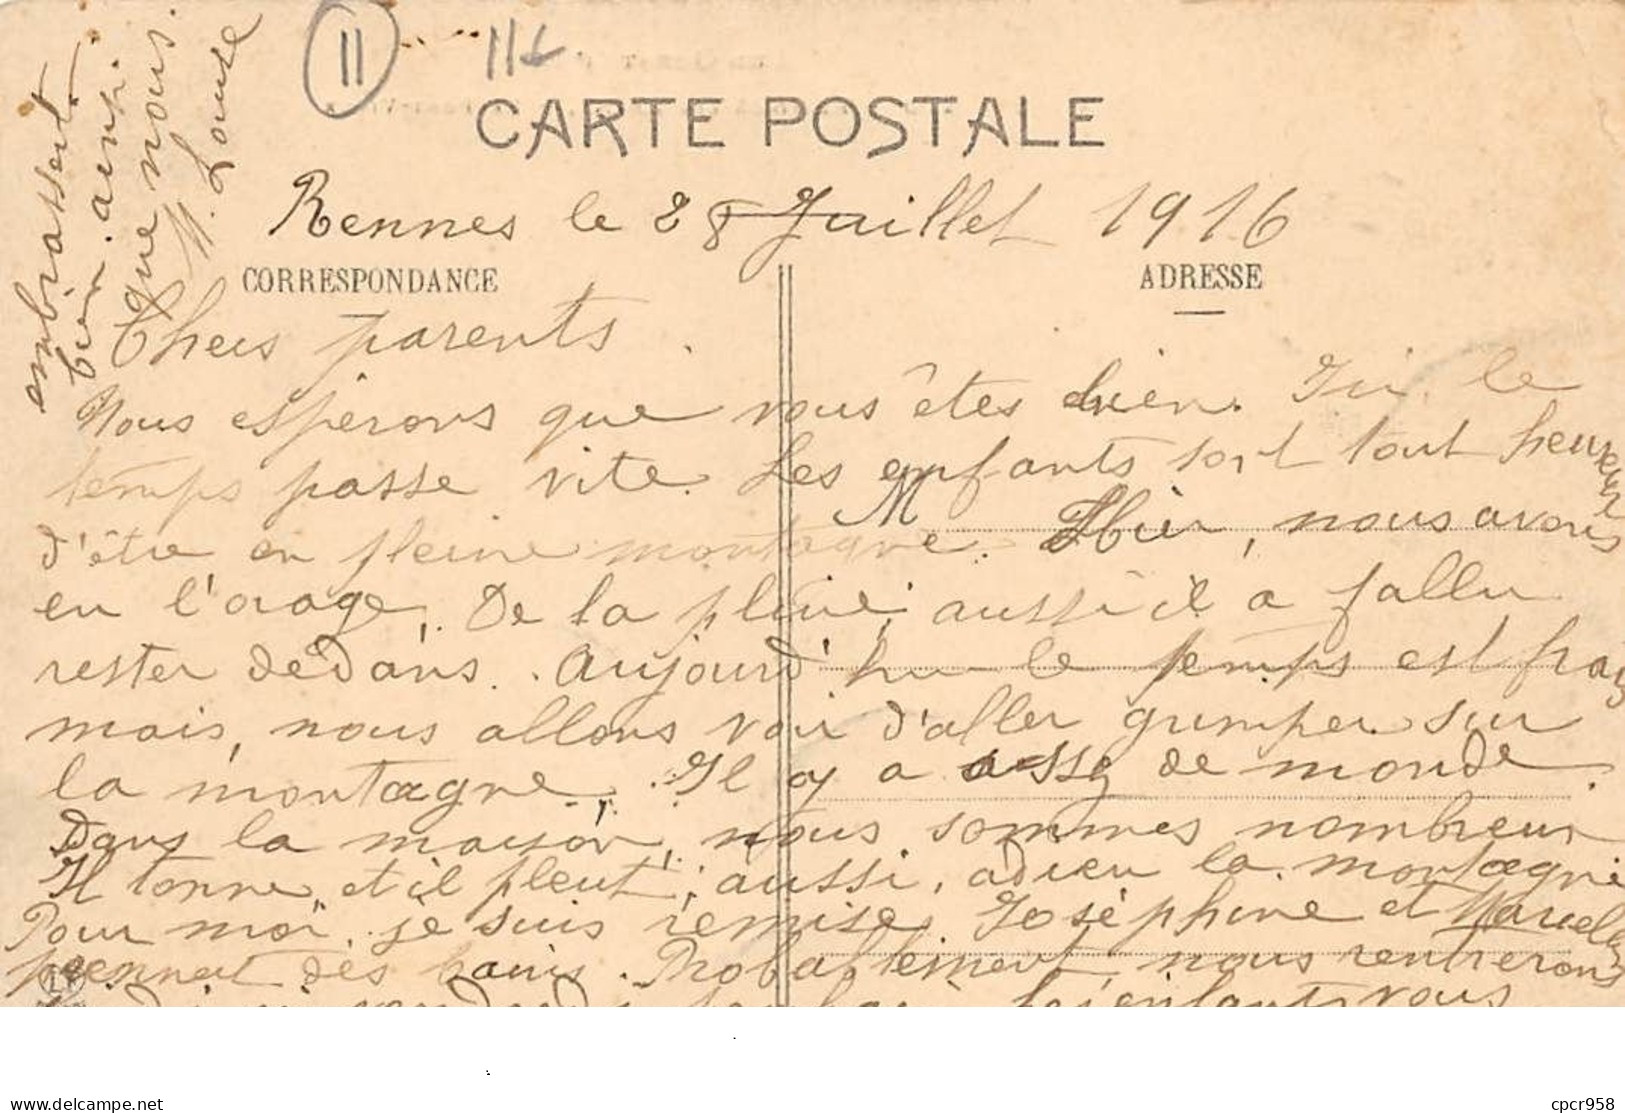 11
116
CARTE POSTALE
Rennes le 28 Juillet 1916
CORRESPONDANCE
ADRESSE
Chers parents.
Nous espérons que vous êtes bien. Ici, le
temps passe vite. Les enfants sont tout heureux
M
d'être en pleine montagne. Hier, nous avons
eu l'orage. De la pluie, aussi il a fallu
rester dedans. Aujourd'hui le temps est frais
mais, nous allons voir d'aller grimper sur
la montagne. Il y a assez de monde.
Dans la maison, nous sommes nombreux
Il tonne, et il pleut, aussi, adieu la montagne
Pour moi, je suis remise, Joséphine et Marcelle
prennent des bains. Probablement, nous rentrerons
vendredi Les enfants vous
embrassent
bien ainsi
que nous.
M. Louise
delcampe.net
cpcr958